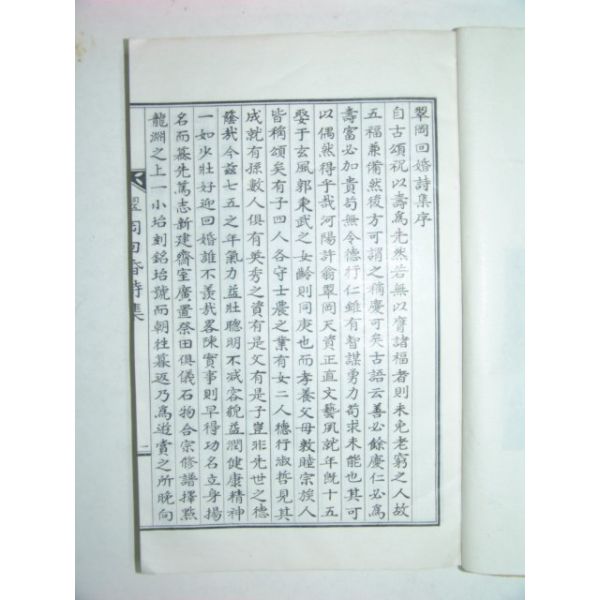 翠岡回婚詩集序
自古頌祝以壽爲先然若無以賁諸福者則未免老窮之人故
五福兼備然後方可謂之稱慶可矣古語云善必餘慶仁必爲
壽富必加貴苟無令德行仁雖有智謀勇力苟求未能也其可
以偶然得乎哉河陽許翁翠岡天資正直文藝夙就年旣十五
娶于玄風郭秉武之女齡則同庚也而孝養父母敦睦宗族人
皆稱頌矣有子四人各守士農之業有女二人德行淑哲見其
成就有孫數人俱有英秀之資有是父有是子豈非先世之德
蔭哉今玆七五之年氣力益壯聰明不减容貌益潤健康精神
一如少壯好迎回婚誰不羨哉畧陳實事則早得功名立身揚
名而慕先篤志新建齋室廣置祭田俱儀石物合宗修譜擇㸃
龍淵之上一小坮刻銘坮號而朝往暮返乃爲遊賞之所晩向
翠岡回婚詩集
一